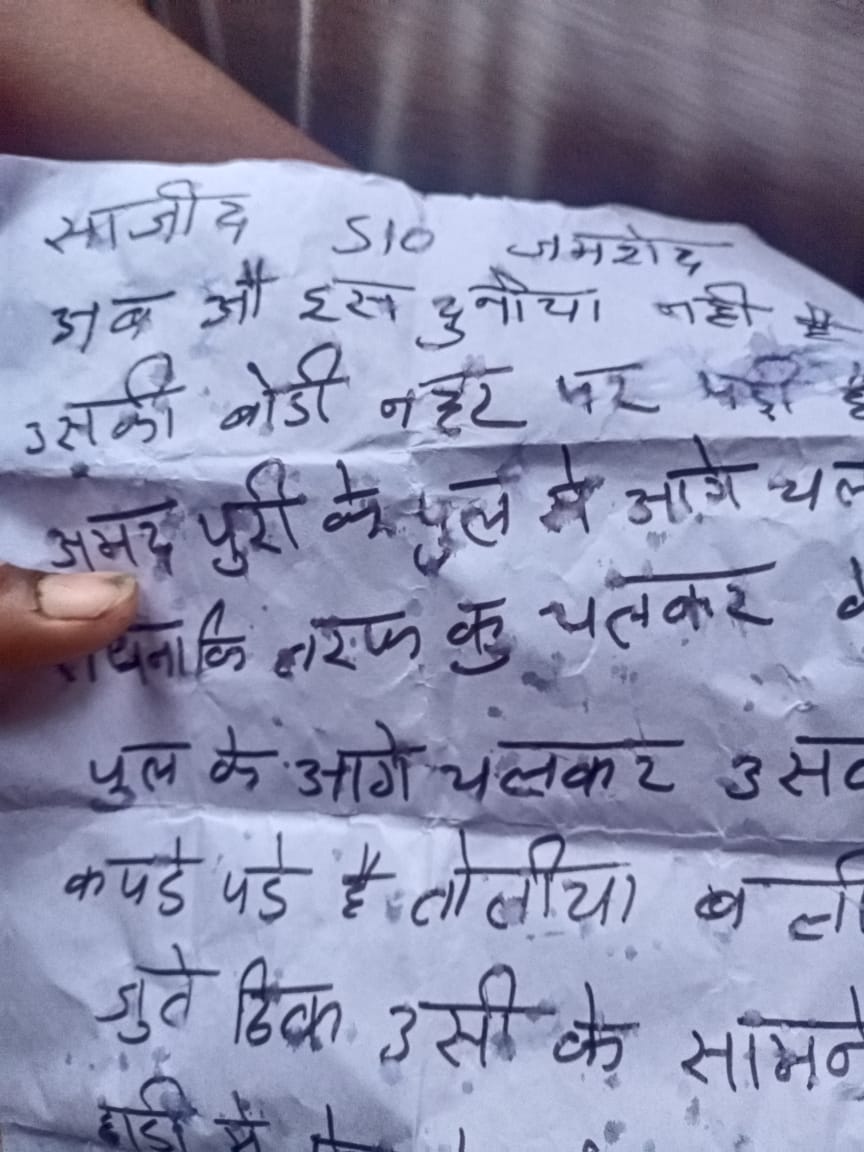 साजीद S/O जमशेद
अब औ इस दुनीया नही है
उसकी बोडी नहर पर पडी है
अमद पुरी के पुल से आगे चल
तरफ कु चलकर के
पुल के आगे चलकर उसक
कपडे पडे है तोलीया ब
जुते ठिक उसी के सामने